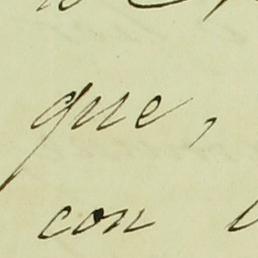 que,
con